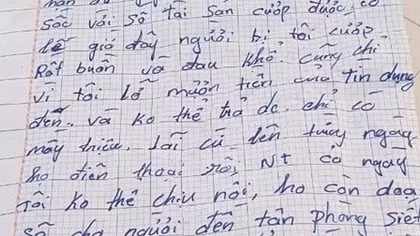 sắc với số tài sản cướp được, có
lẽ giờ đây người bị tôi cướp
Rất buồn và đau khổ. cũng chỉ
vì tôi lỡ mượn tiền của tín dụng
đen. và ko thể trả dc. chỉ có
mấy triệu. lãi cũ lên từng ngày
họ điện thoại rồi NT cả ngày
Tôi ko thể chịu nổi, họ còn doạ
sẽ cho người đến tận phòng siết